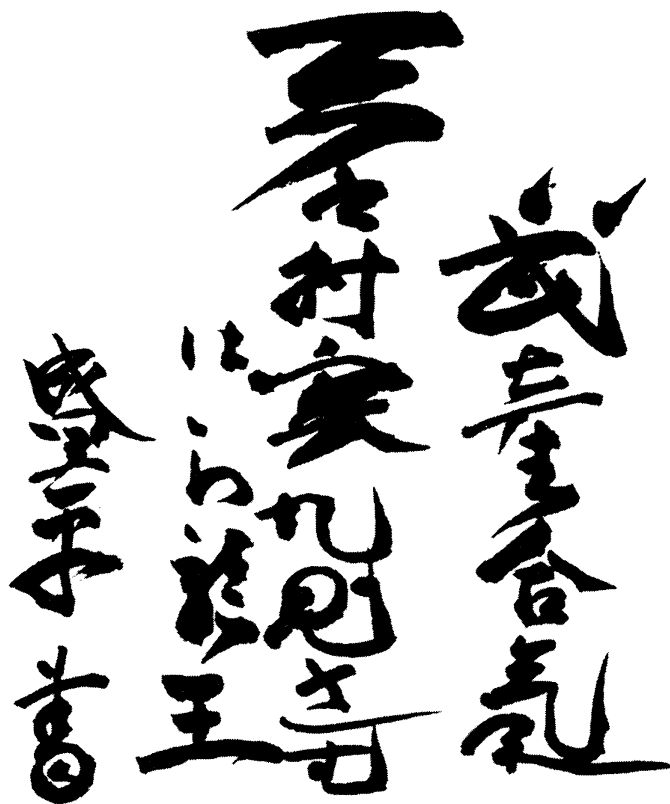 武産合氣
村雲九鬼さむ
はら龍王
盛平 書